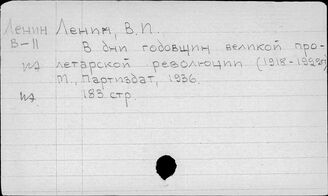 Ленин Ленин, В.И.
В-11 В дни годовщин великой про-
летарской революции (1918-1922)
М., Партиздат, 1936.
183 стр.